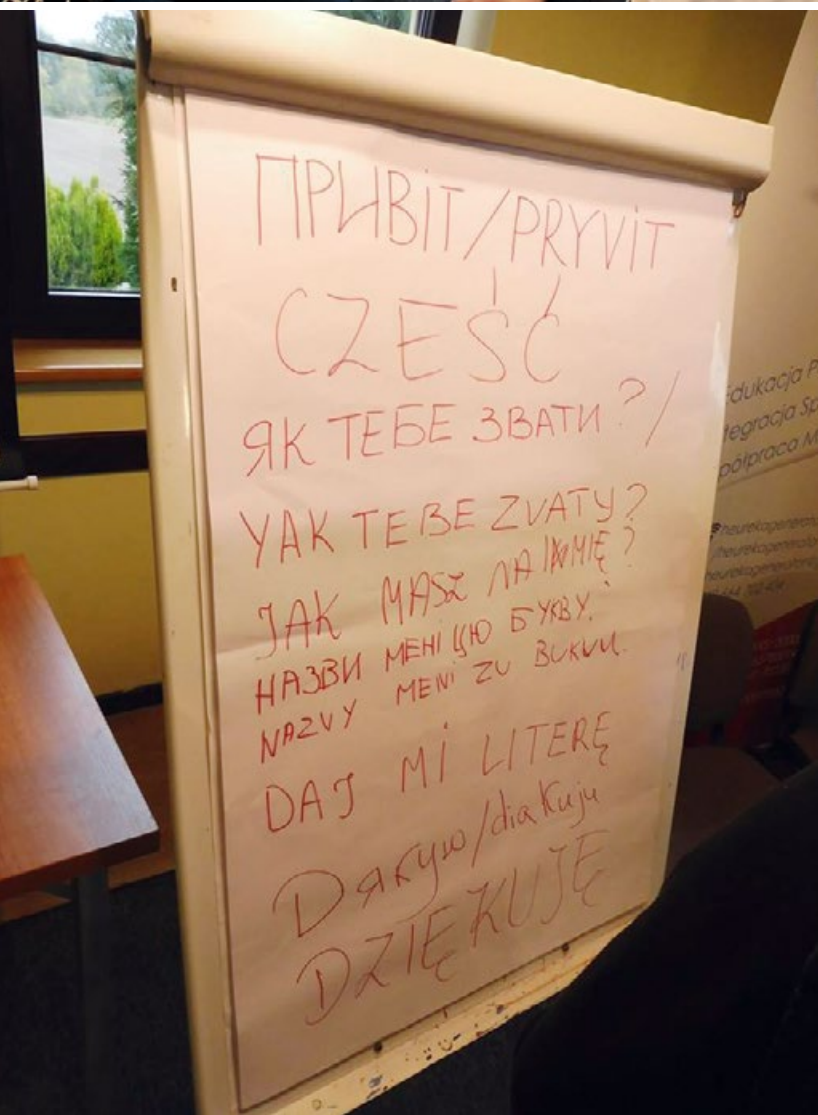 ПРИВІТ/PRYVIT
CZEŚĆ
ЯК ТЕБЕ ЗВАТИ?/
YAK TEBE ZVATY?
JAK MASZ NA IMIĘ?
НАЗВИ МЕНІ ЦЮ БУКВУ.
NAZVY MENI ZU BUKVU.
DAJ MI LITERĘ
Dякую/diakuju
DZIĘKUJĘ
Edukacja